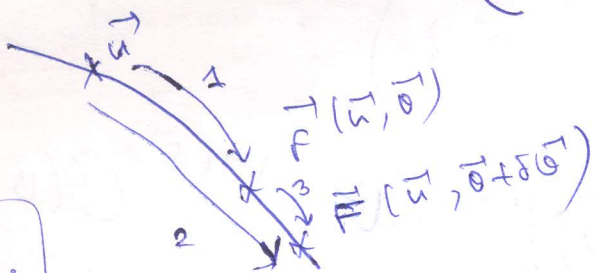 u⃗
1
F⃗ (u⃗, θ⃗)
3
F⃗ (u⃗, θ⃗+δθ⃗)
2